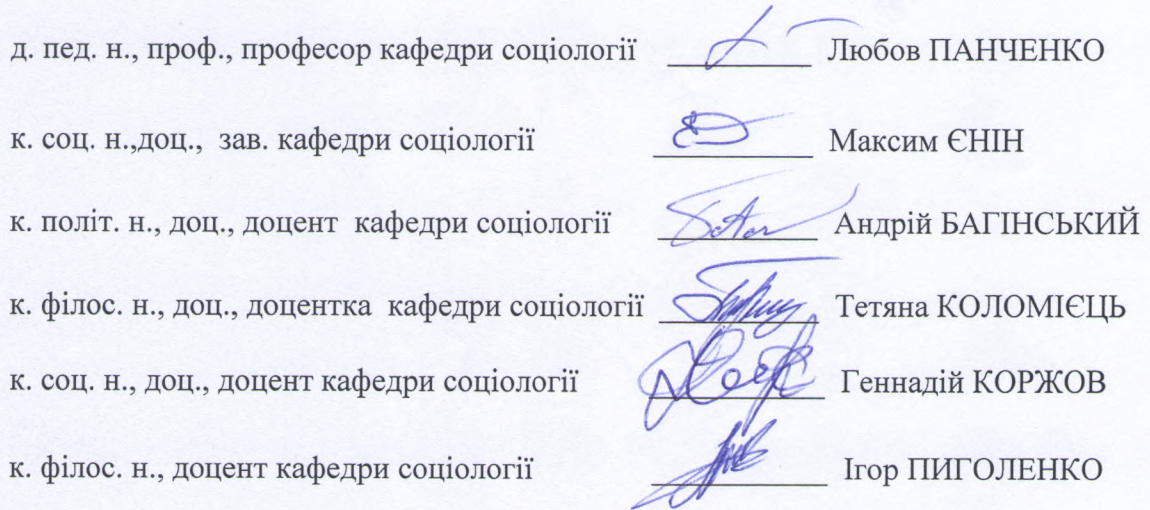 д. пед. н., проф., професор кафедри соціології Любов ПАНЧЕНКО
к. соц. н.,доц., зав. кафедри соціології Максим ЄНІН
к. політ. н., доц., доцент кафедри соціології Андрій БАГІНСЬКИЙ
к. філос. н., доц., доцентка кафедри соціології Тетяна КОЛОМІЄЦЬ
к. соц. н., доц., доцент кафедри соціології Геннадій КОРЖОВ
к. філос. н., доцент кафедри соціології Ігор ПИГОЛЕНКО